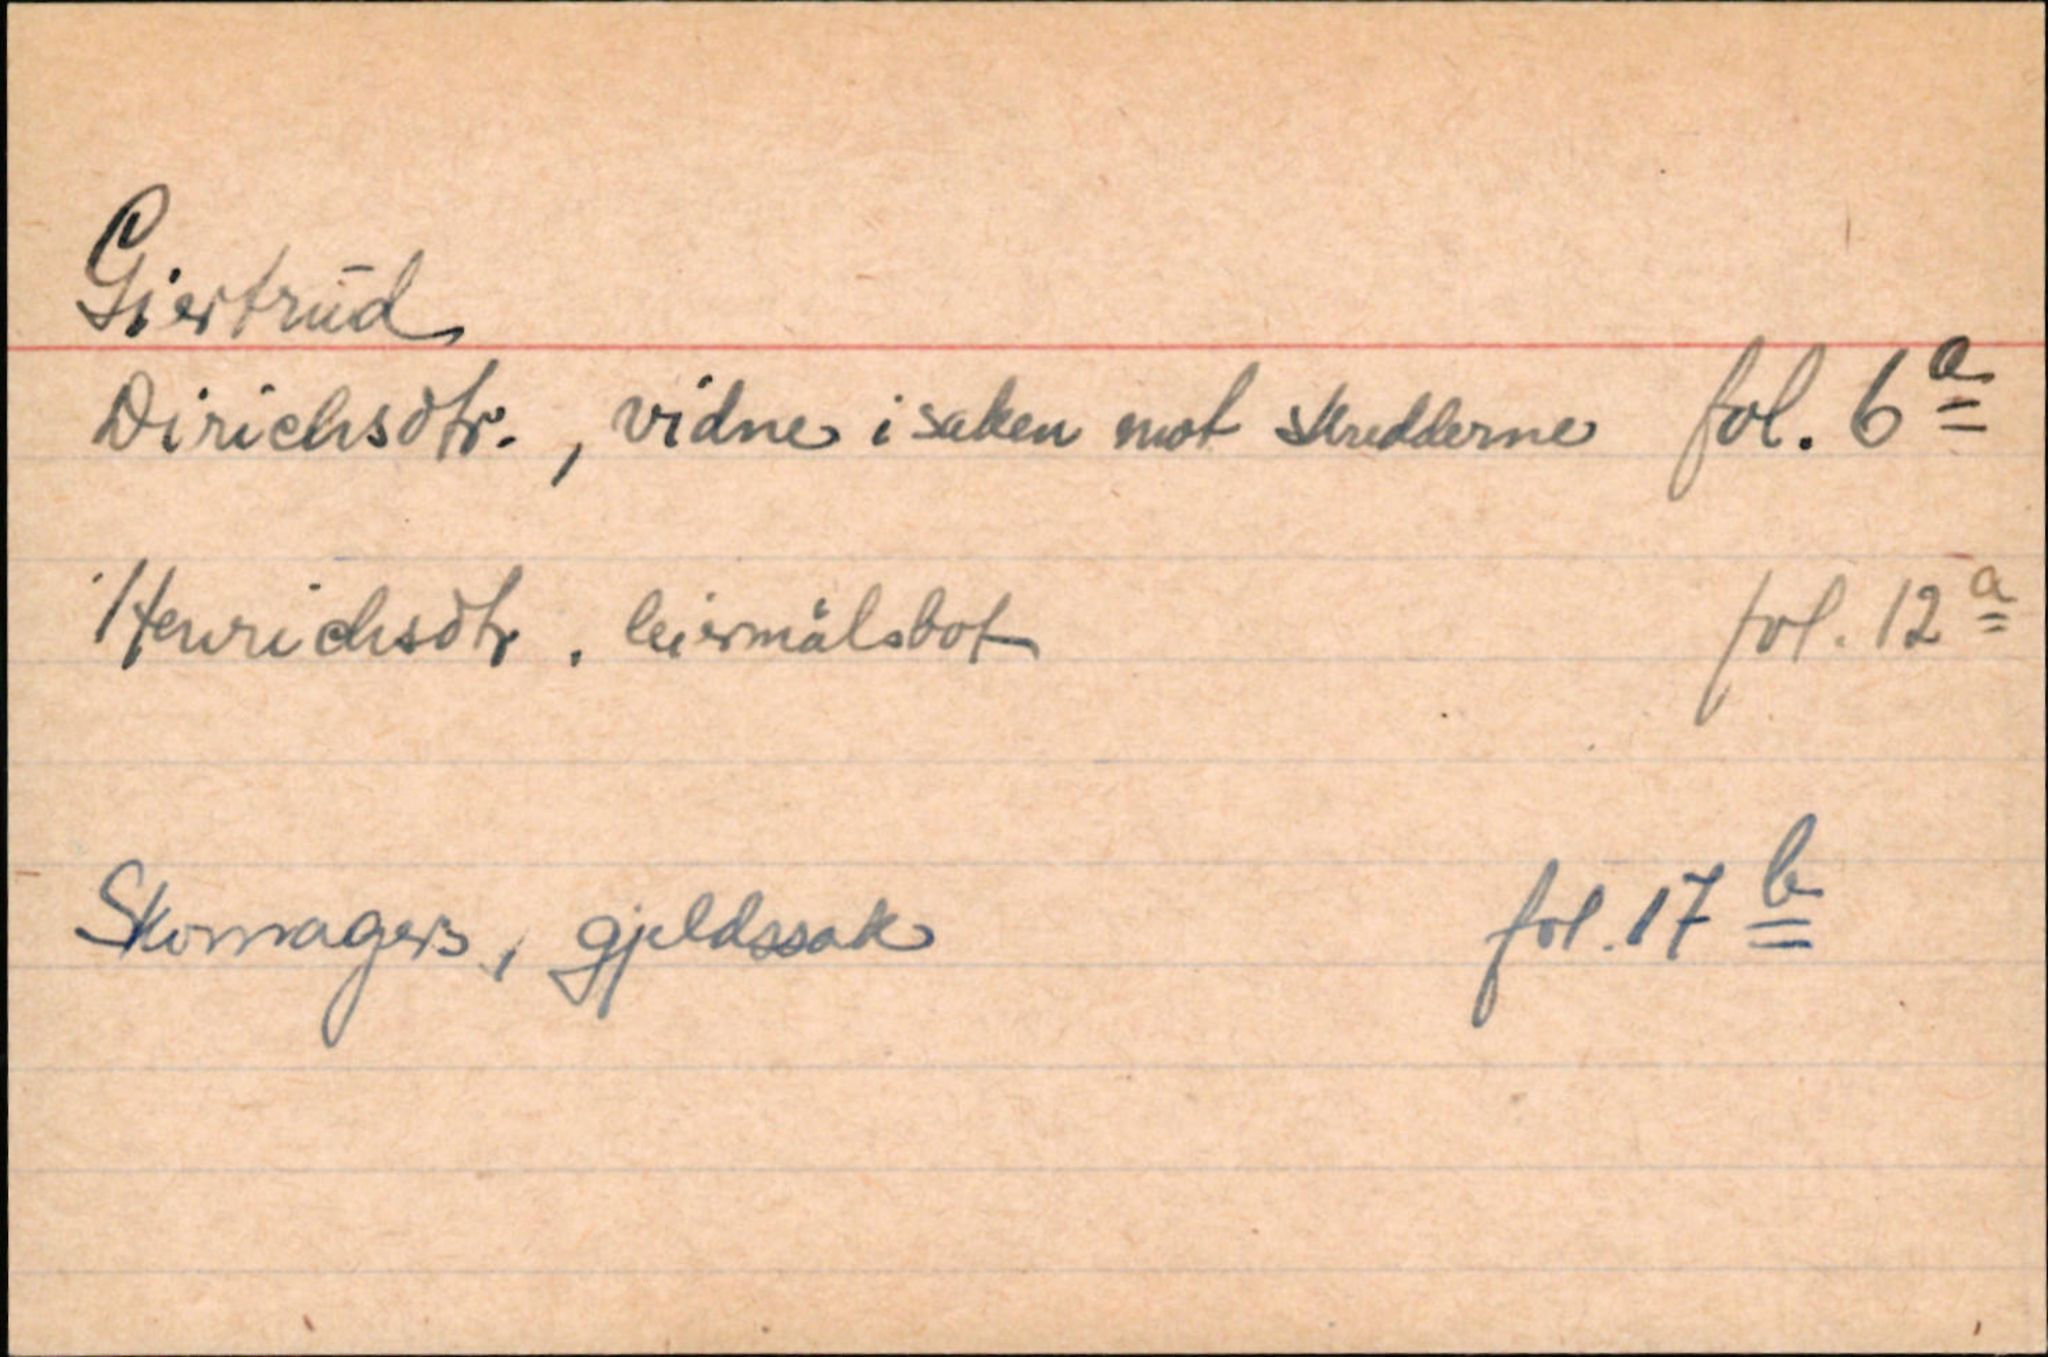 Giertrud
Dirichsdtr., vidne i saken mot skredderne fol. 6a
Henrichsdtr. leiermålsbot fol. 12a
Skomagers, gjeldssak fol. 17b